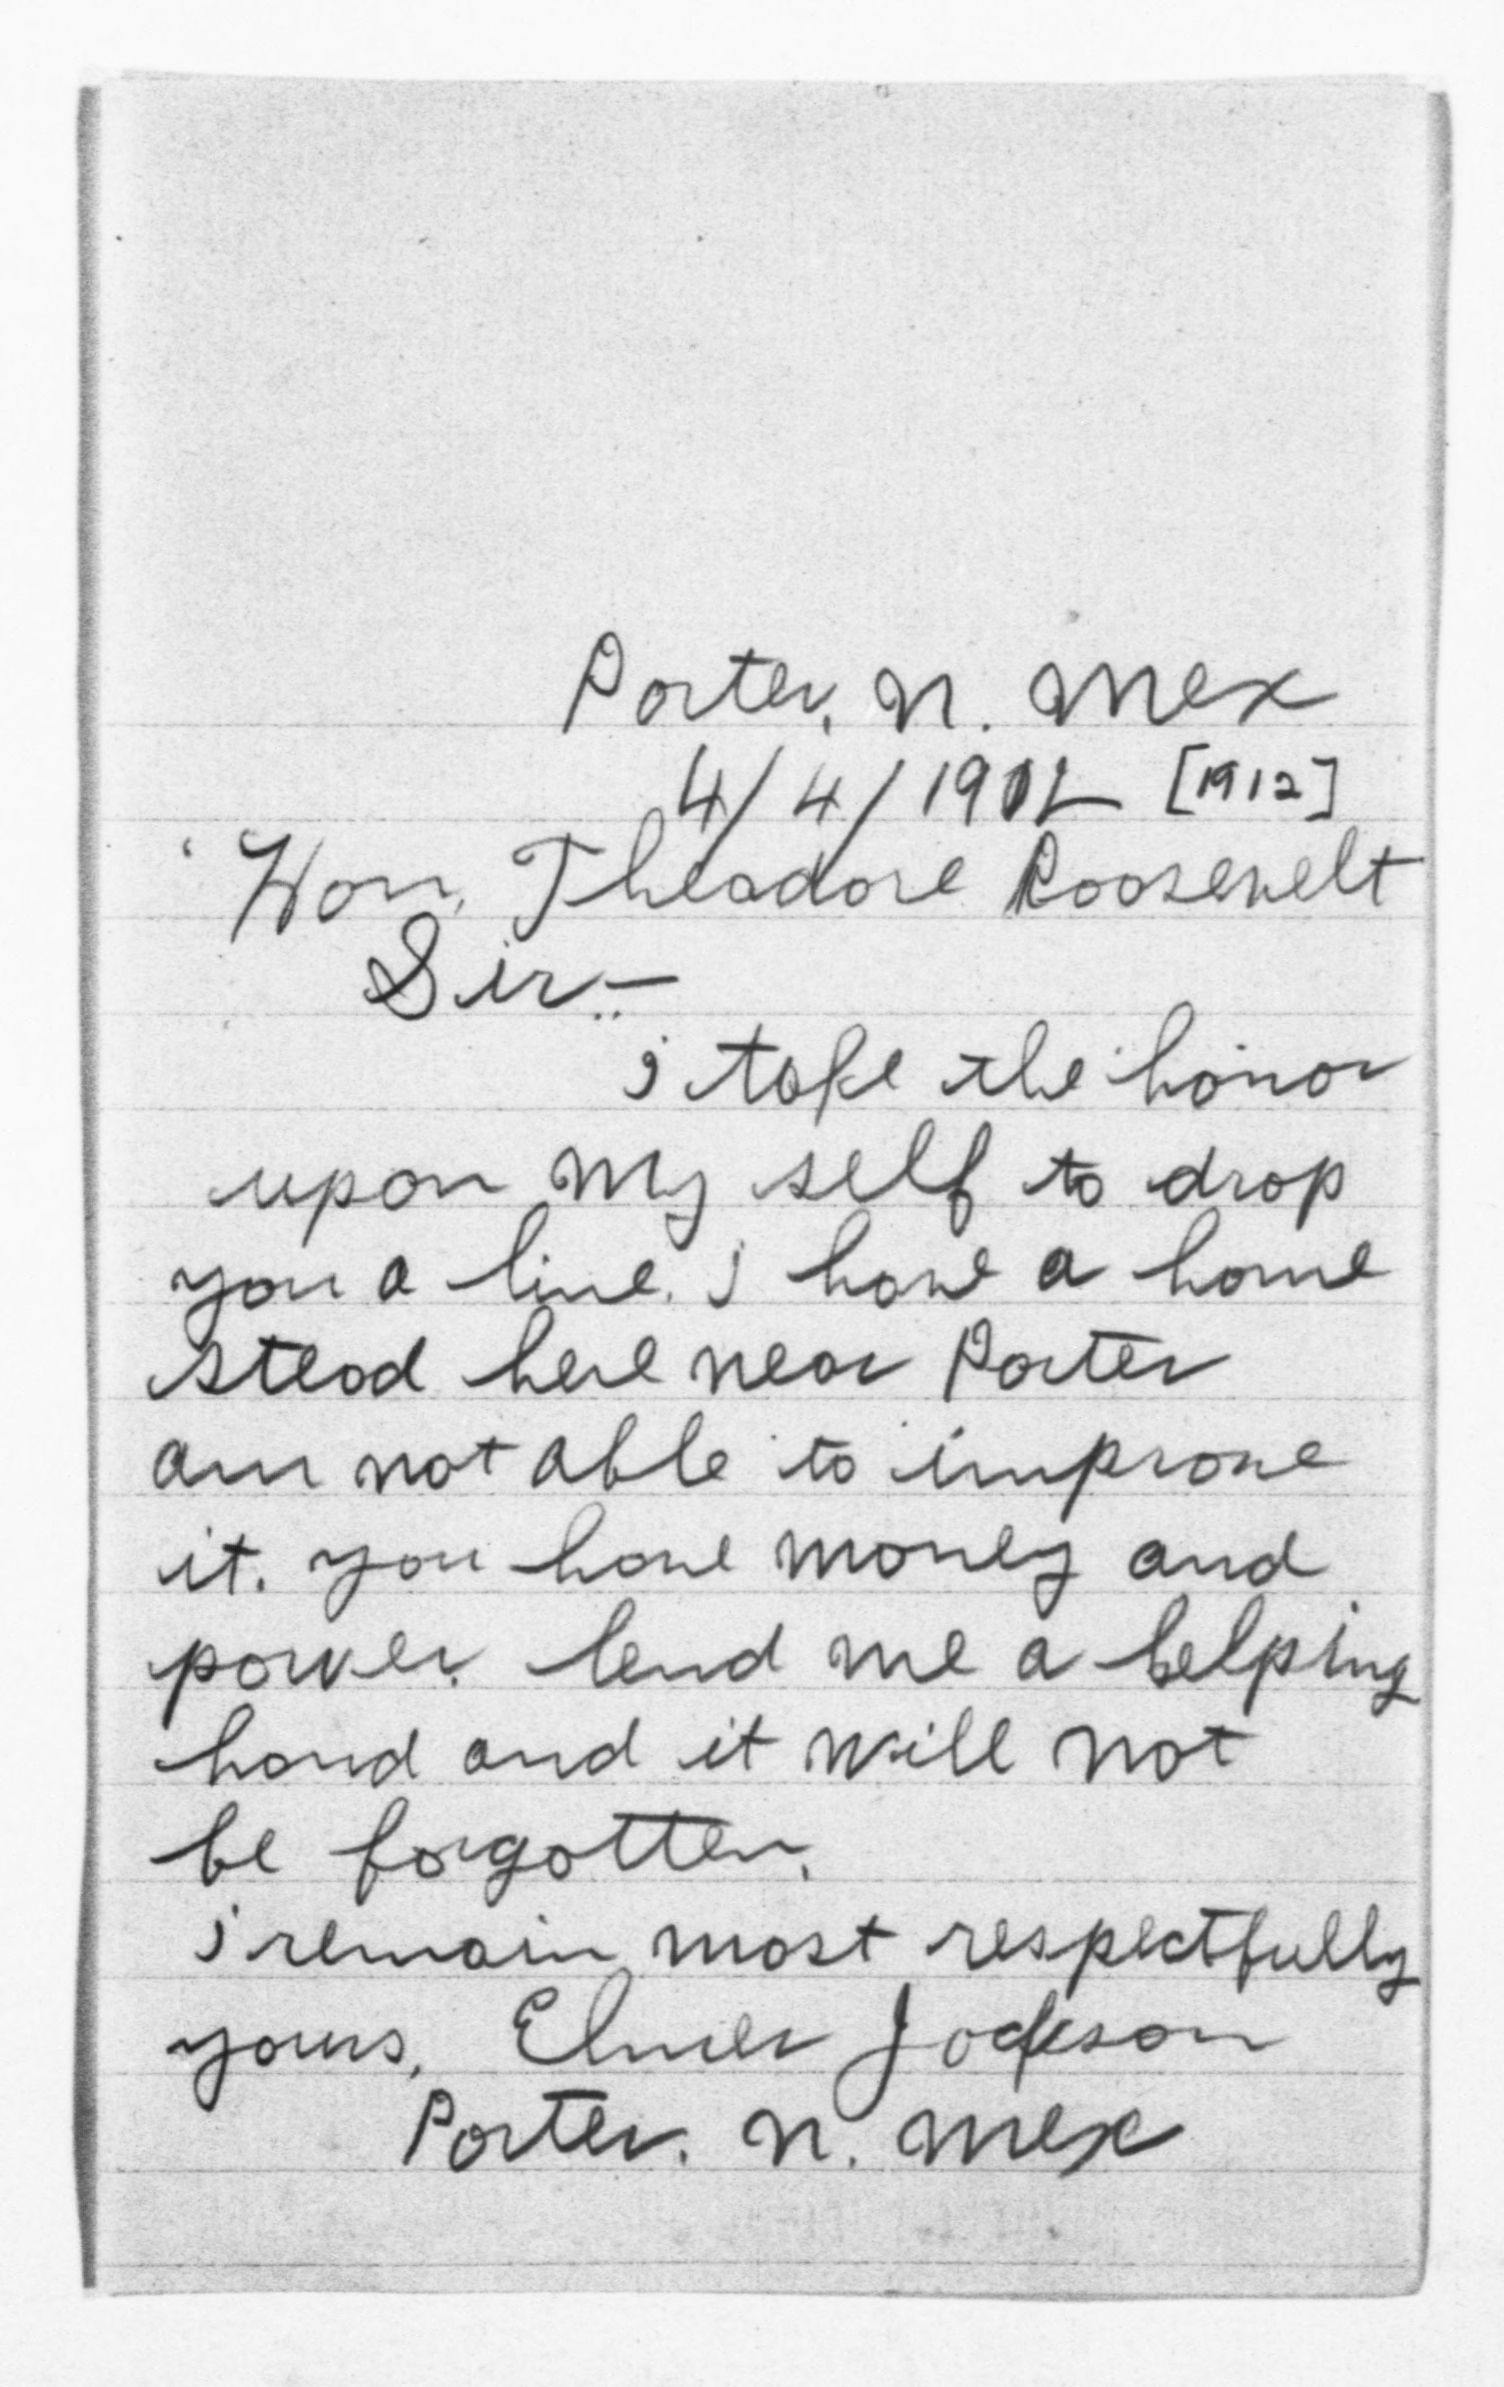 Porter, N. Mex
4/4/1912 [1912]
Hon. Theadore Roosevelt
Sir:-
i take the honor
upon my self to drop
you a line. i have a home
stead here near Porter
am not able to improve
it. you have money and
power. lend me a helping
hand and it will not
be forgotten.
i remain most respectfully
yours, Elmer Jackson
Porter. N. Mex